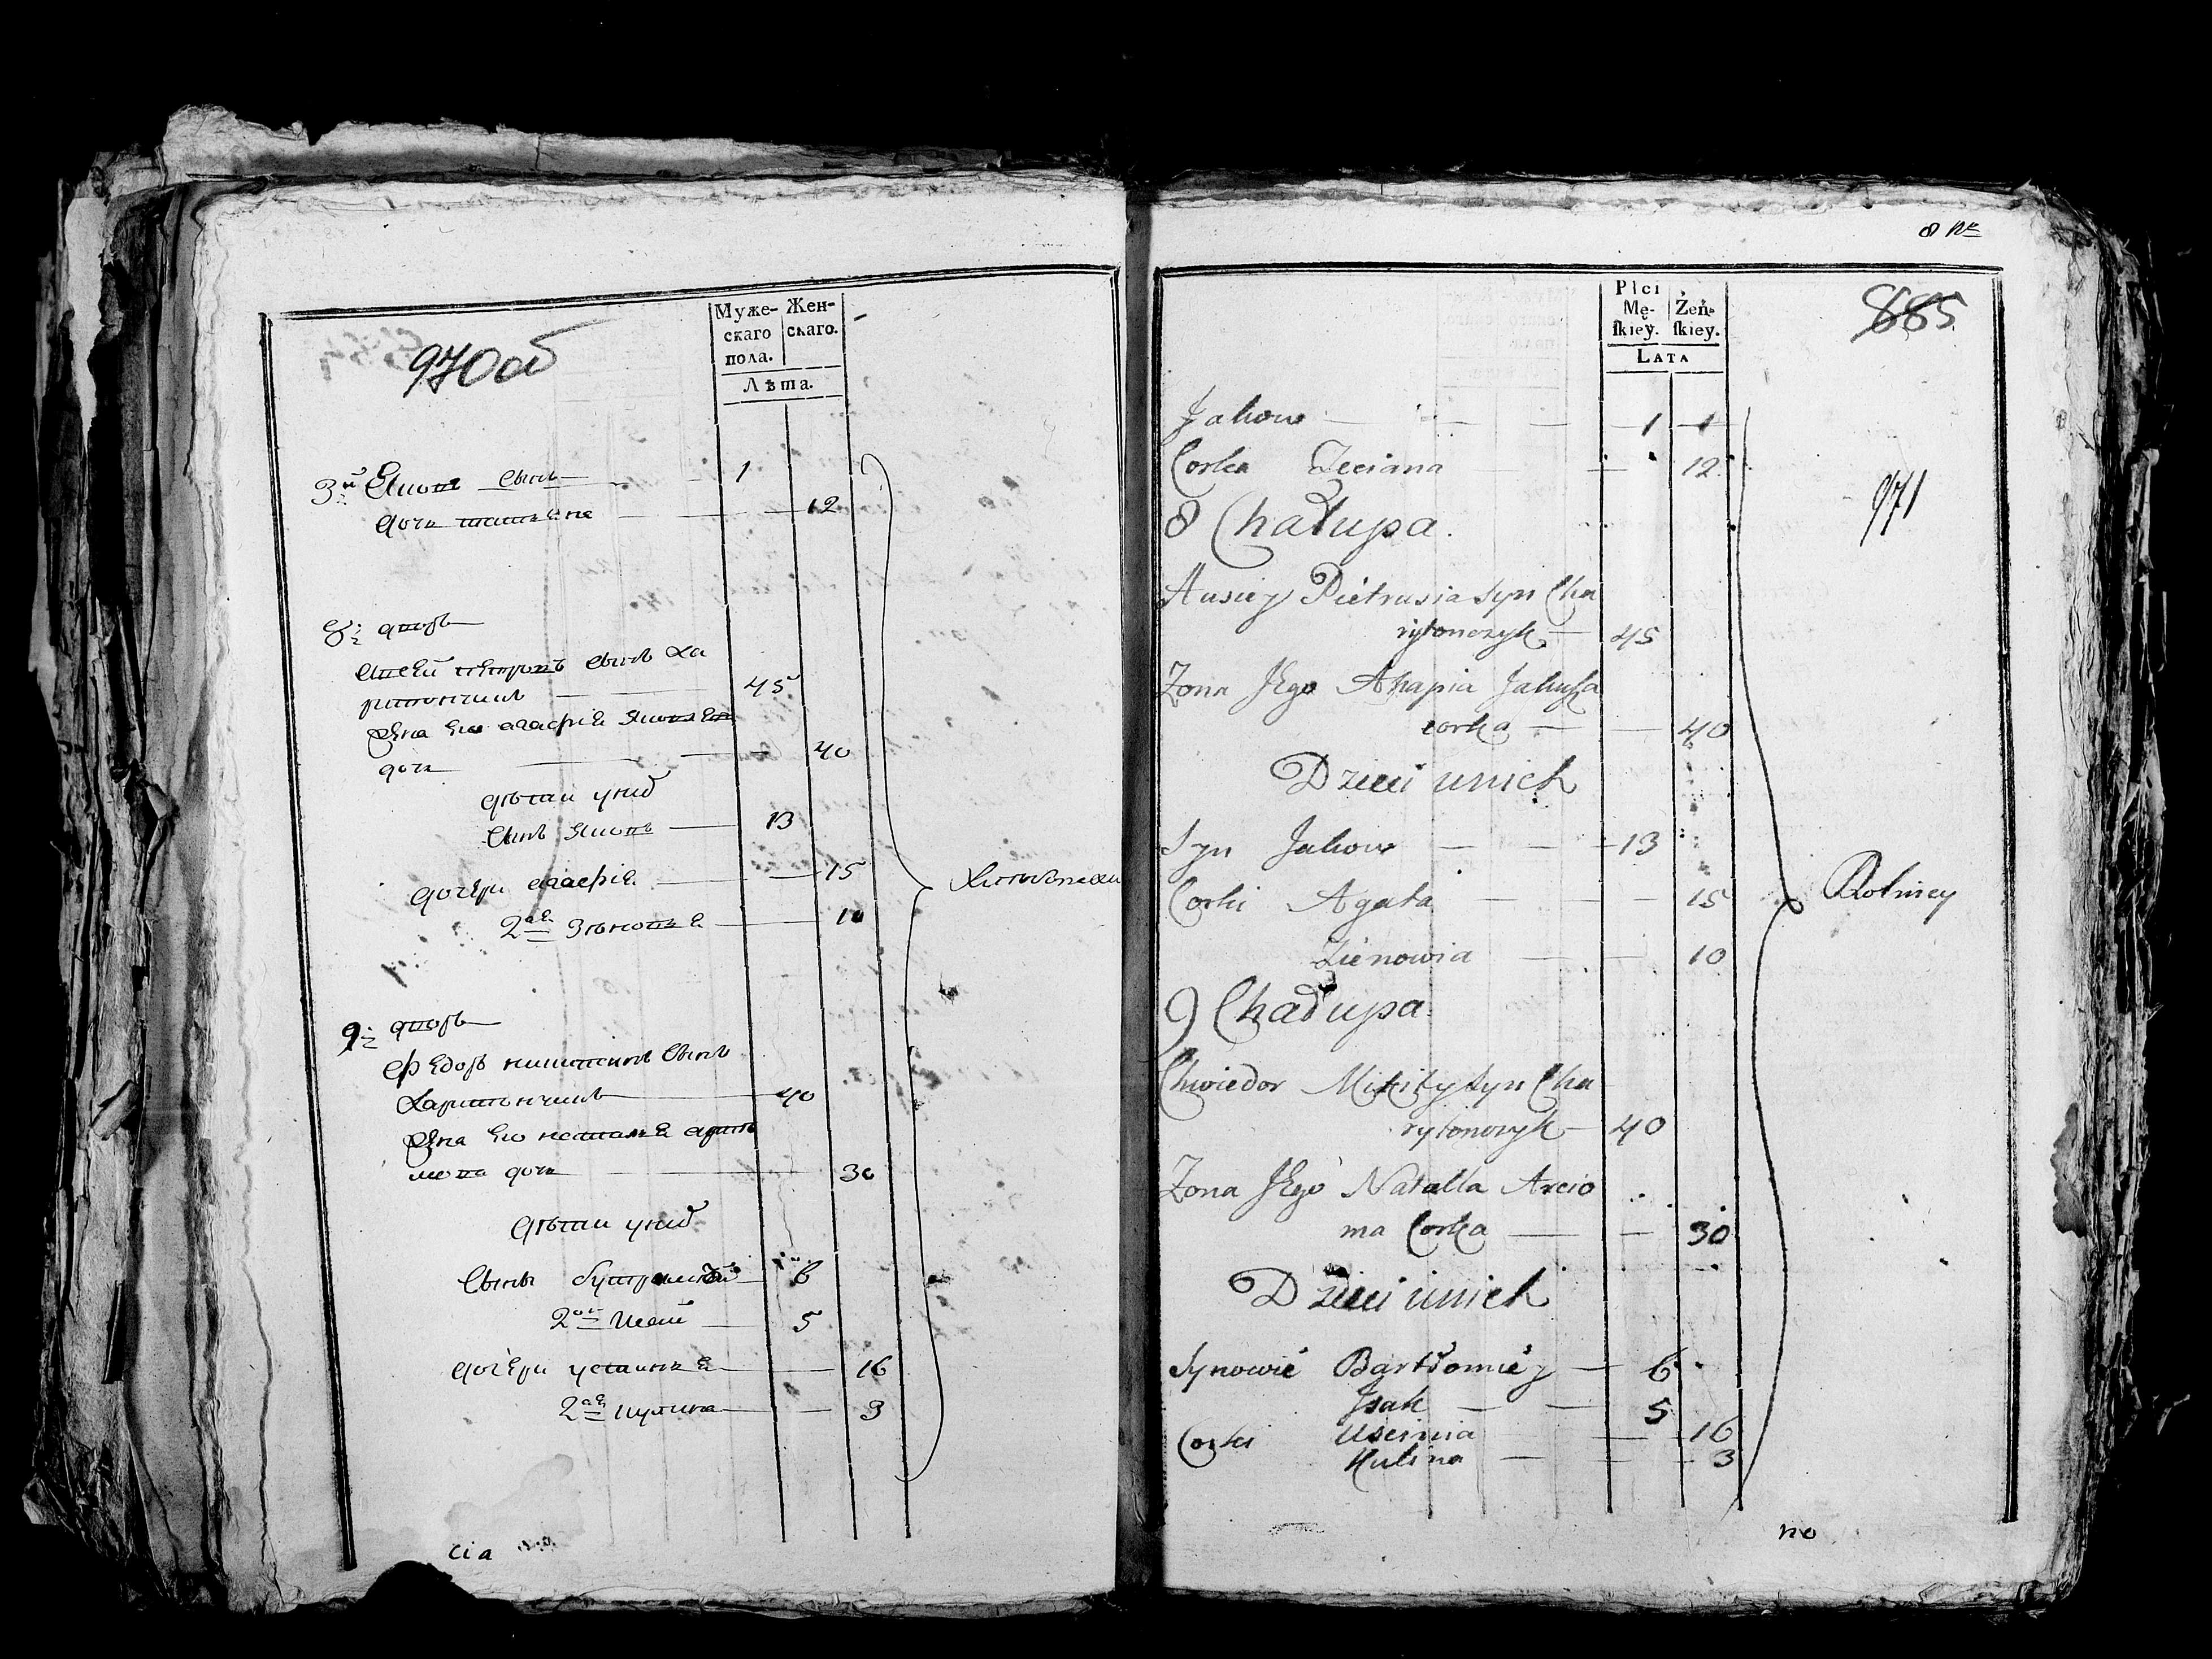 970об
Муже-
скаго
пола.
Жен-
скаго.
Лѣта.
3й Яковъ сынъ 1
дочь татьяна 12
8: дворъ
Евсей петровъ сынъ Ха
ритончикъ 45
жена его агафія яковлева
дочь 40
дѣтии унихъ
сынъ яковъ 13
дочери агафія 15
2ая Зѣновья 10
9: дворъ
Федоръ никитинъ сынъ
Харитончикъ 40
жена его наталья артю
мова дочь 30
дѣтии унихъ
сыны 6
2ой Исакъ 5
дочери устинья 16
2ая кулина 3
cia
8 No
885
Płci
Mę-
ſkiey.
Żeń-
ſkiey.
LATA
971
Jakow 1 1
Corka Teciana 12
8 Chałupa.
Ausiey Pietrusia Syn Cha
rytonczyk 45
Zona JEgo Ahapia Jakuba
corka 40
Dzieci unich
Syn Jakow 13
Corki Agata 15
Zienowia 10
Rolnicy
9 Chałupa.
Chwiedor Mikity Syn Cha
rytonczyk 40
Zona JEgo Natalla Arcio
ma Corka 30
Dzieci unich
Synowie Bartłomiey 6
Jsak 5
Corki Uscinia 16
Kulina 3
no